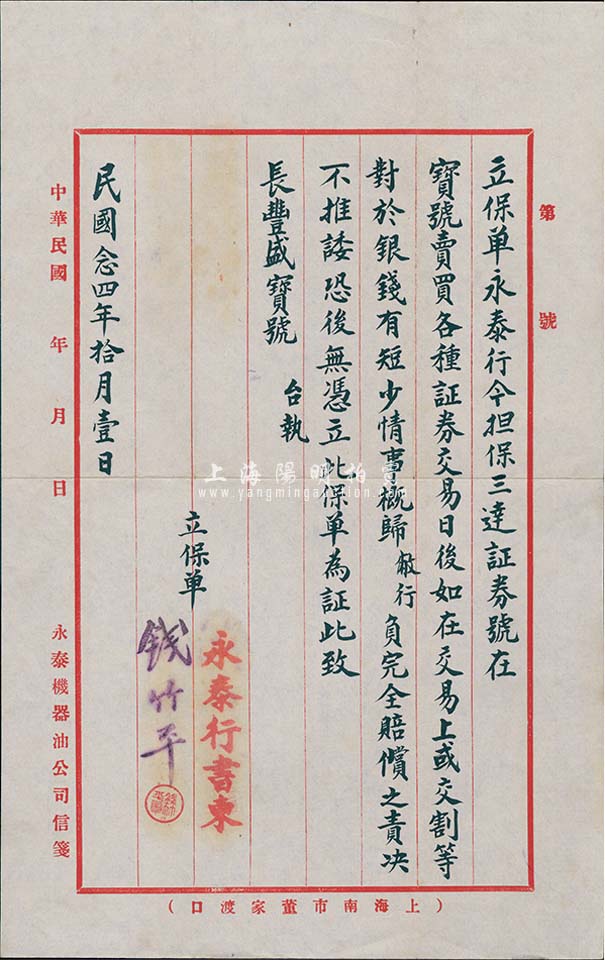 第　號
立保单永泰行今担保三達証券號在
寶號賣買各種証券交易日後如在交易上或交割等
對於銀錢有短少情事概歸敝行負完全賠償之責决
不推諉恐後無憑立此保单為証此致
長豐盛寶號
台執
立保单
永泰行書柬
錢竹平
民國念四年拾月壹日
中華民國　年　月　日
永泰機器油公司信箋
（上海南市董家渡口）
上海陽明拍賣
www.yangmingauction.com